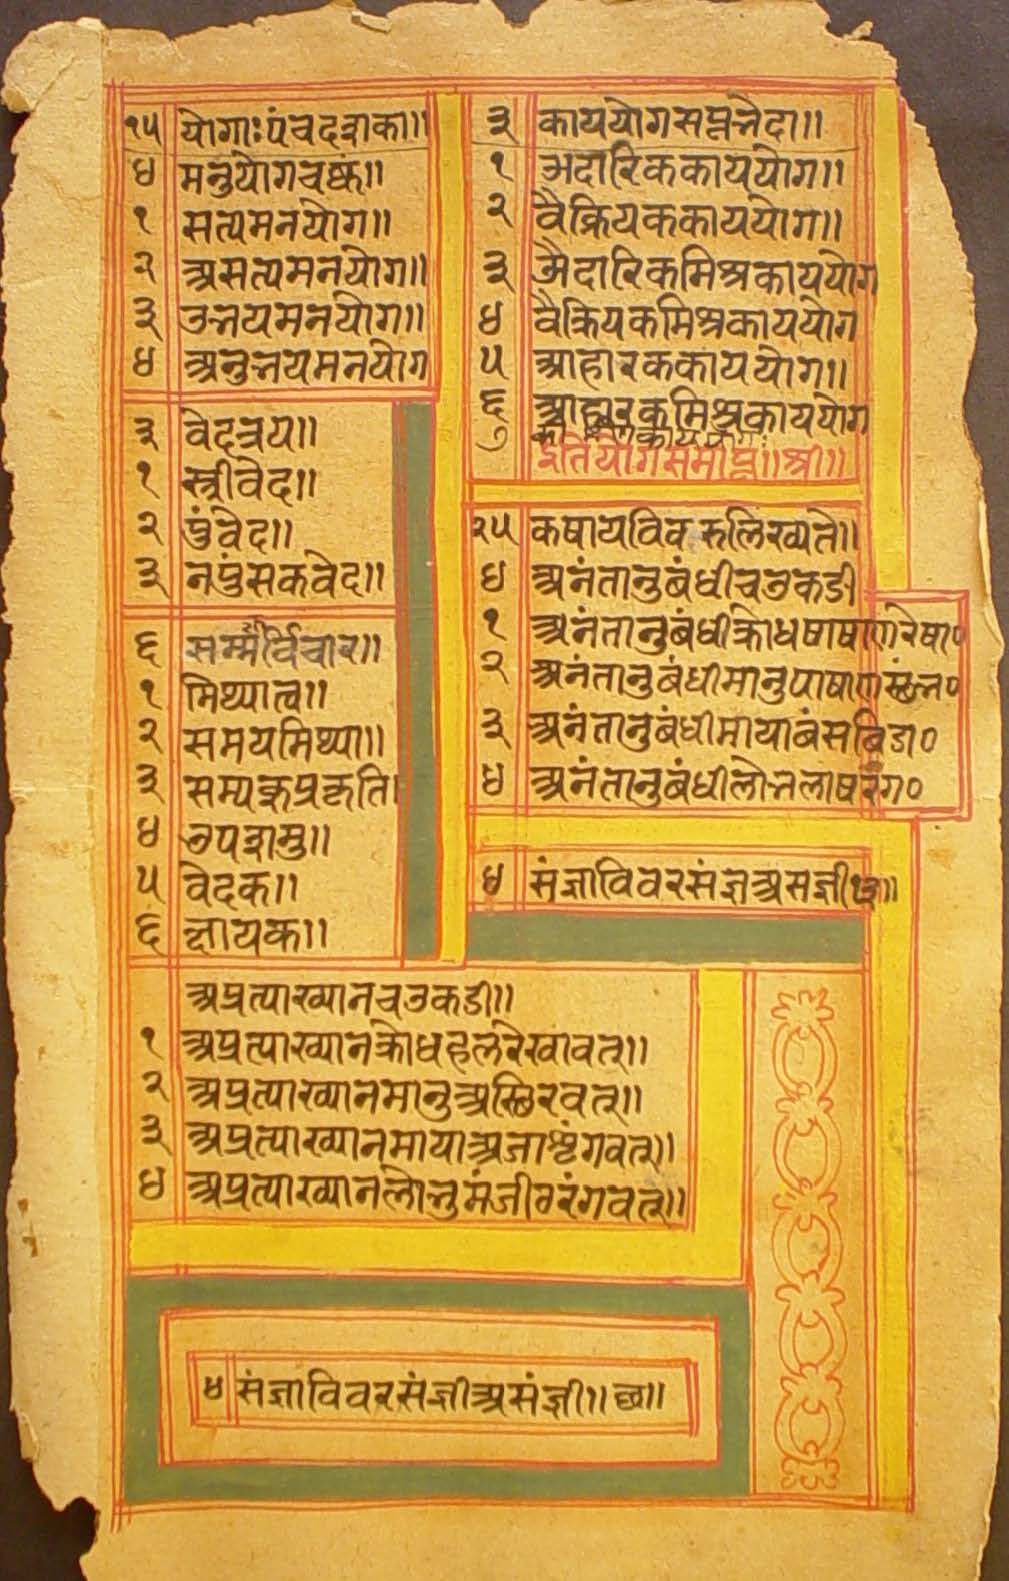 १५ योगाः पंचदशका॥
४ मनुयोगचष्क॥
१ सत्यमनयोग॥
२ असत्यमनयोग॥
३ उभयमनयोग॥
४ अनुभयमनयोग
३ वेदत्रय॥
१ स्त्रीवेद॥
२ पुंवेद॥
३ नपुंसकवेद॥
६ विचार॥
१ मिथ्यात्व॥
२ समयमिथ्या॥
३ सम्यक्प्रकृति।
४ उपशमु॥
५ वेदक॥
६ क्षायक॥
३ काययोगसप्तभेदा॥
१ औदारिककाययोग॥
२ वैक्रियककाययोग॥
३ औदारिकमिश्रकाययोग
४ वैक्रियकमिश्रकाययोग
५ आहारककाययोग॥
६ आहारकमिश्रकाययोग
७
इति योगसमाप्त॥श्री॥
२५ कषायविव लिख्यते॥
४ अनंतानुबंधीचउकडी
१ अनंतानुबंधीक्रोधषाषाणरेषा०
२ अनंतानुबंधीमानुपाषाणस्तंभ०
३ अनंतानुबंधीमायाबंसबिडा०
४ अनंतानुबंधीलोभलाषरंग०
४ संज्ञाविवरसंज्ञअसज्ञी
अप्रत्याख्यानचउकडी॥
१ अप्रत्याख्यानक्रोधहलरेखावत्॥
२ अप्रत्याख्यानमानुअस्थिरवत्॥
३ अप्रत्याख्यानमायाअजाशृंगवत्॥
४ अप्रत्याख्यानलोभुमंजीठरंगवत्॥
४ संज्ञाविवरसंज्ञीअसंज्ञी॥छ॥